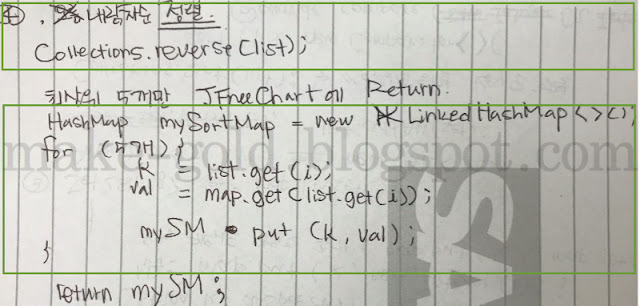 ④ . 내림차순 정렬.
Collections.reverse(list);
최상위 5개만 JFreeChart에 Return.
HashMap mySortMap = new LinkedHashMap<>();
for (5개) {
k = list.get(i);
val = map.get(list.get(i));
mySM . put (k, val);
}
return mySM;
makeagold.blogspot.com
SA